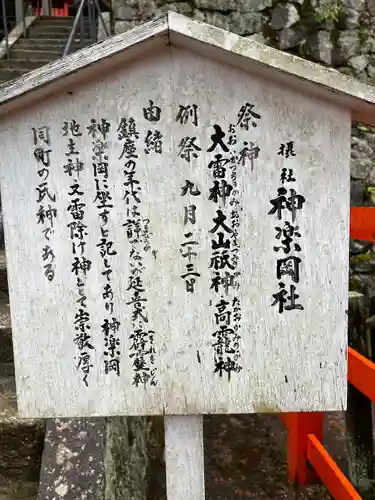 摂社 神楽岡社
祭神
大雷神 大山祇神 高龗神
おおいかづちのかみ おおやまつみのかみ たかおかみのかみ
例祭 九月二十三日
由緒
鎮座の年代は詳かでないが延喜式に霹靂神
つまびら へきれきじん
神楽岡に坐すと記してあり 神楽岡
地主神又雷除け神として崇敬厚く
同町の氏神である